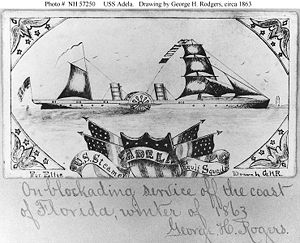 Photo # NH 57250 USS Adela. Drawing by George H. Rodgers, circa 1863
For Ellie
Drawn by G.H.R.
U.S. Steamer
ADELA
Gulf Squad
On blockading service off the coast
of Florida, winter of 1863
George H. Rogers.